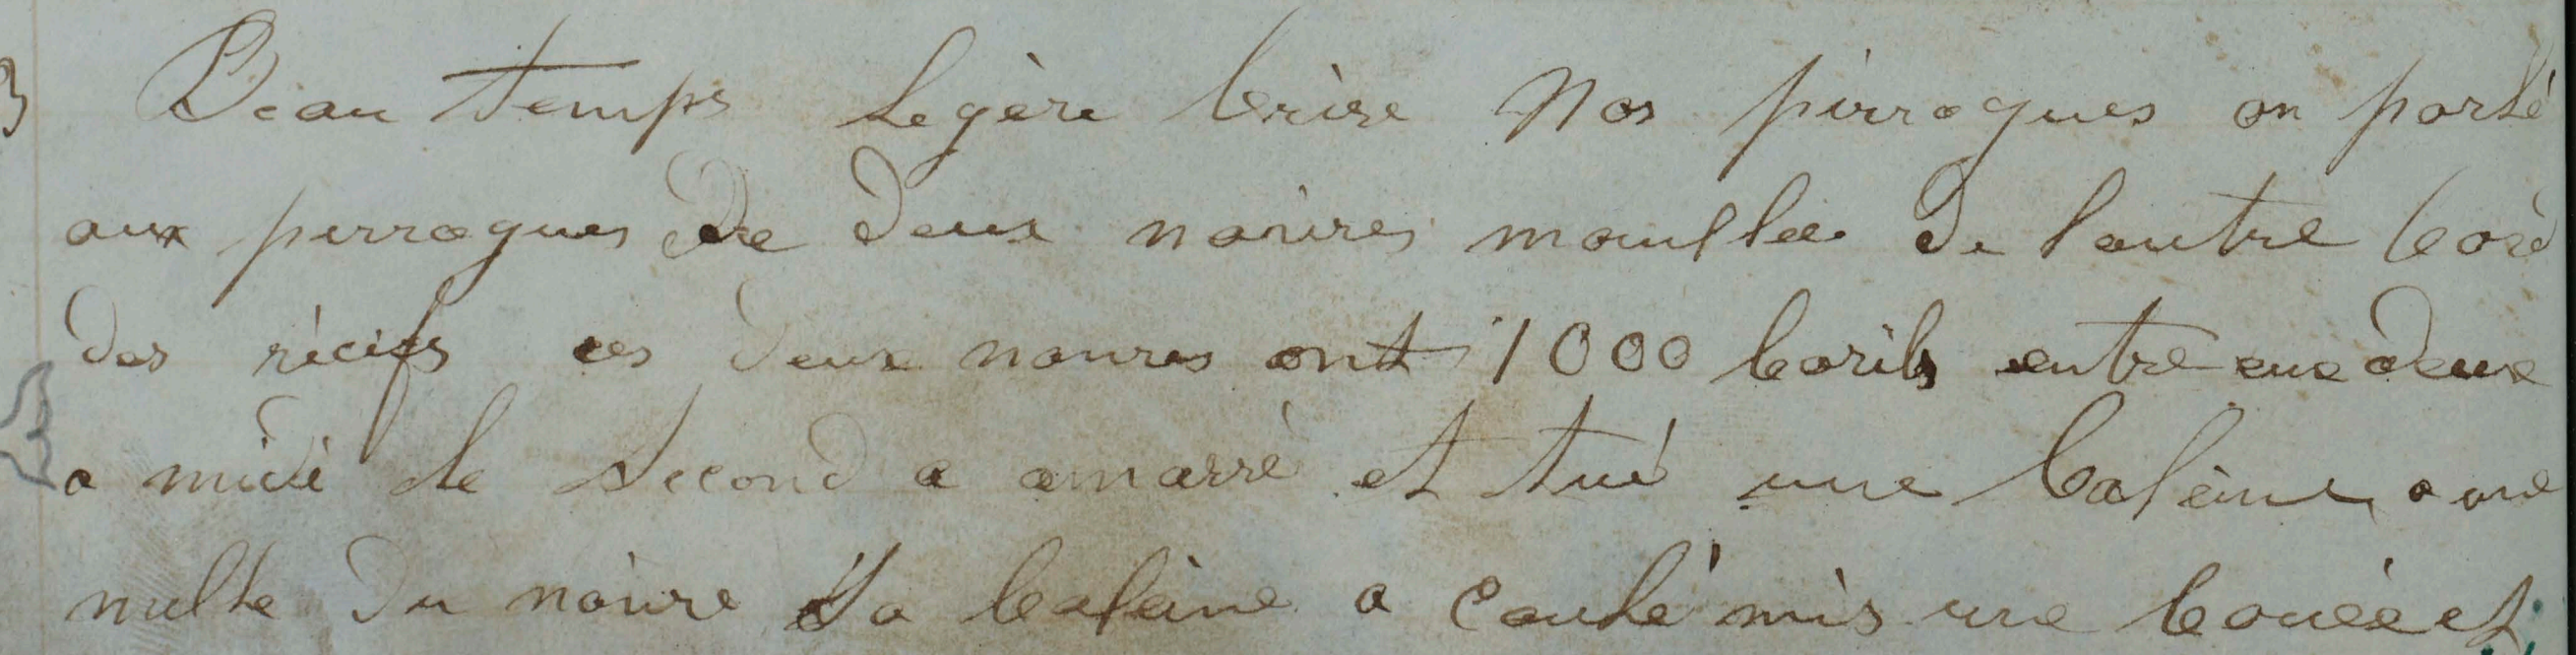 3 Beau temps Legère brise Nos pirrogues on parlé
aux perrogues de deux navires mouillée de lautre bord
des récifs ces deux navires ont 1000 barils entre eux deux
a midi le second a amarré et tué une baleine a une
mille du navire La baleine a coulé mis une bouée et